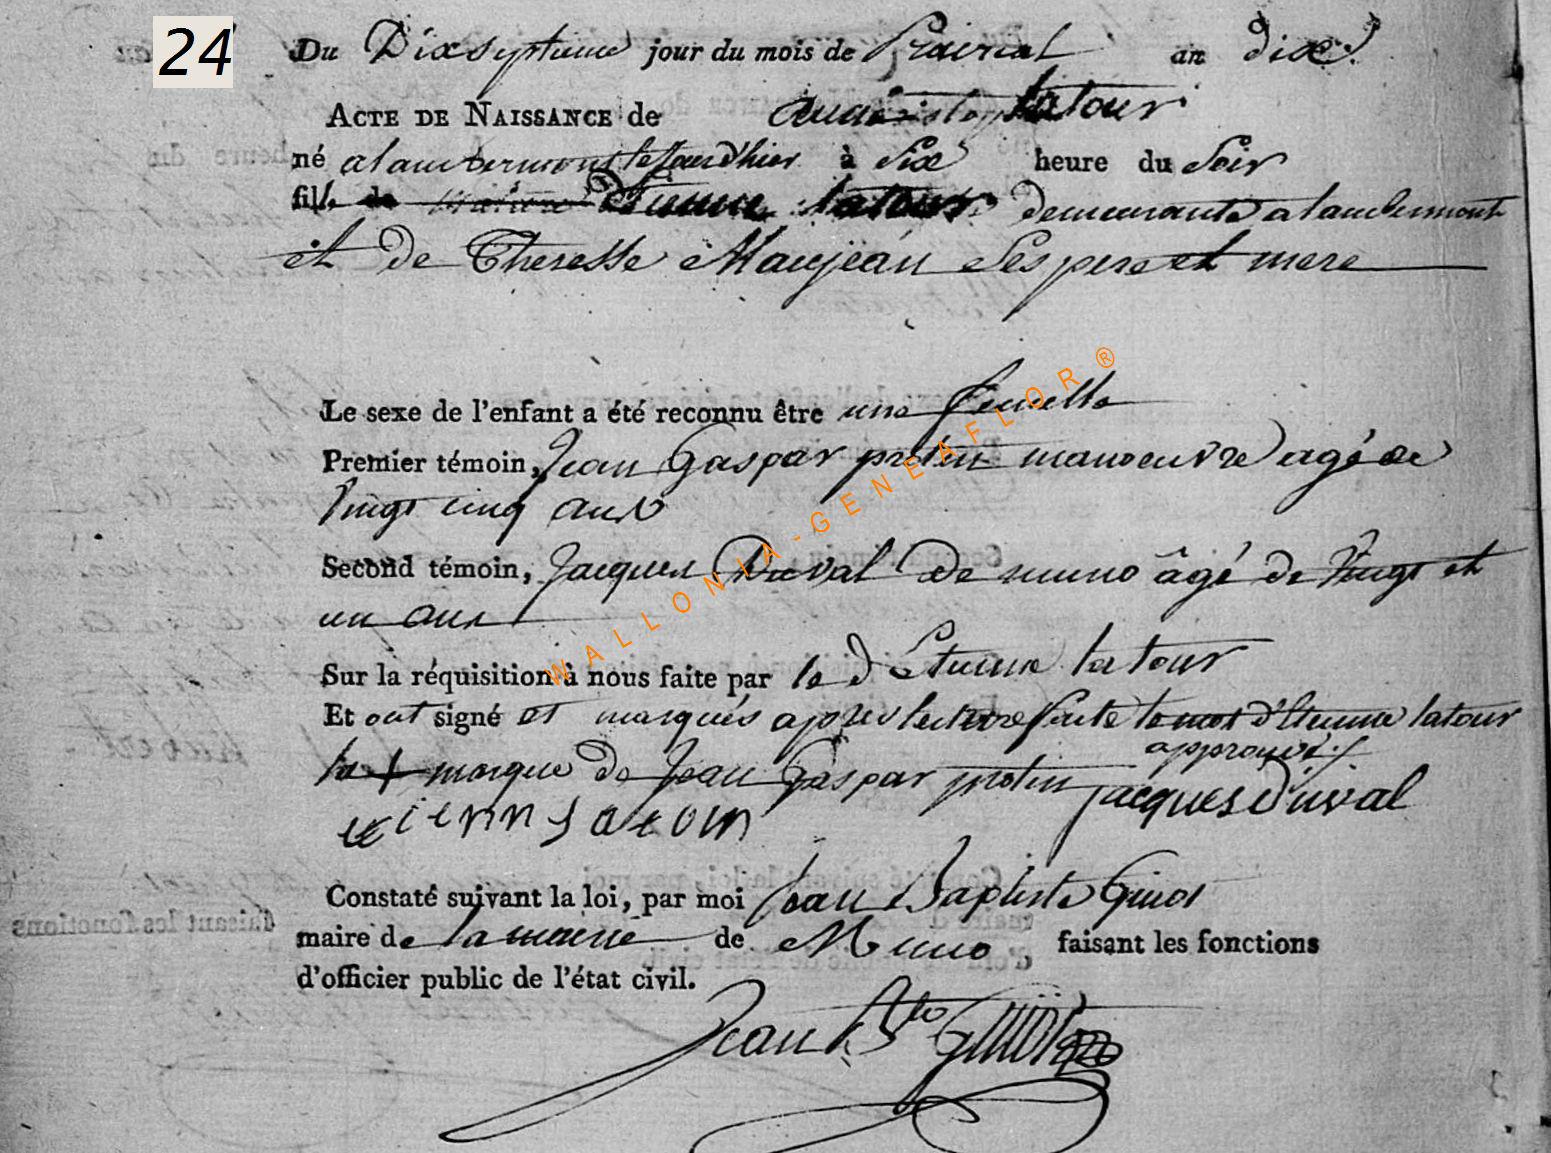 24
Du Dixseptieme jour du mois de Prairial an dix.
ACTE DE NAISSANCE de latour
né a lambermont le jourd'hier à six heure du soir
fille de Etienne latour demeurante a lambermont
et de Theresse Maujean ses pere et mere
Le sexe de l'enfant a été reconnu être une femelle
Premier témoin, Jean Gaspar protin manoeuvre agé de
vingt cinq ans
Second témoin, Jacques Duval de muno âgé de vingt et
un ans
Sur la réquisition à nous faite par le d Etienne latour
Et ont signé et marqués apres lecture faite le mot d'Etienne latour
approuvé
la + marque de Jean Gaspar protin jacques duval
Constaté suivant la loi, par moi Jean Baptiste Guiot
maire de la mairie de Muno faisant les fonctions
d'officier public de l'état civil.
Jean Bte Guiot
WALLONIA-GENEAFLOR®